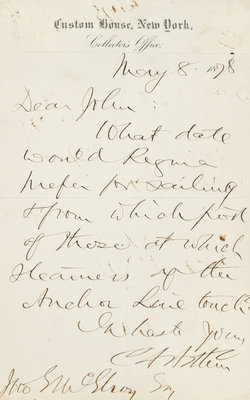 Custom House, New York.
Collector's Office.
May 8. 1878
Dear John:
What date
would Regina
prefer for sailing
& from which port
of those at which
steamers of the
Anchor Line touch?
In haste yours
C A Arthur
Jno E McElroy Esq